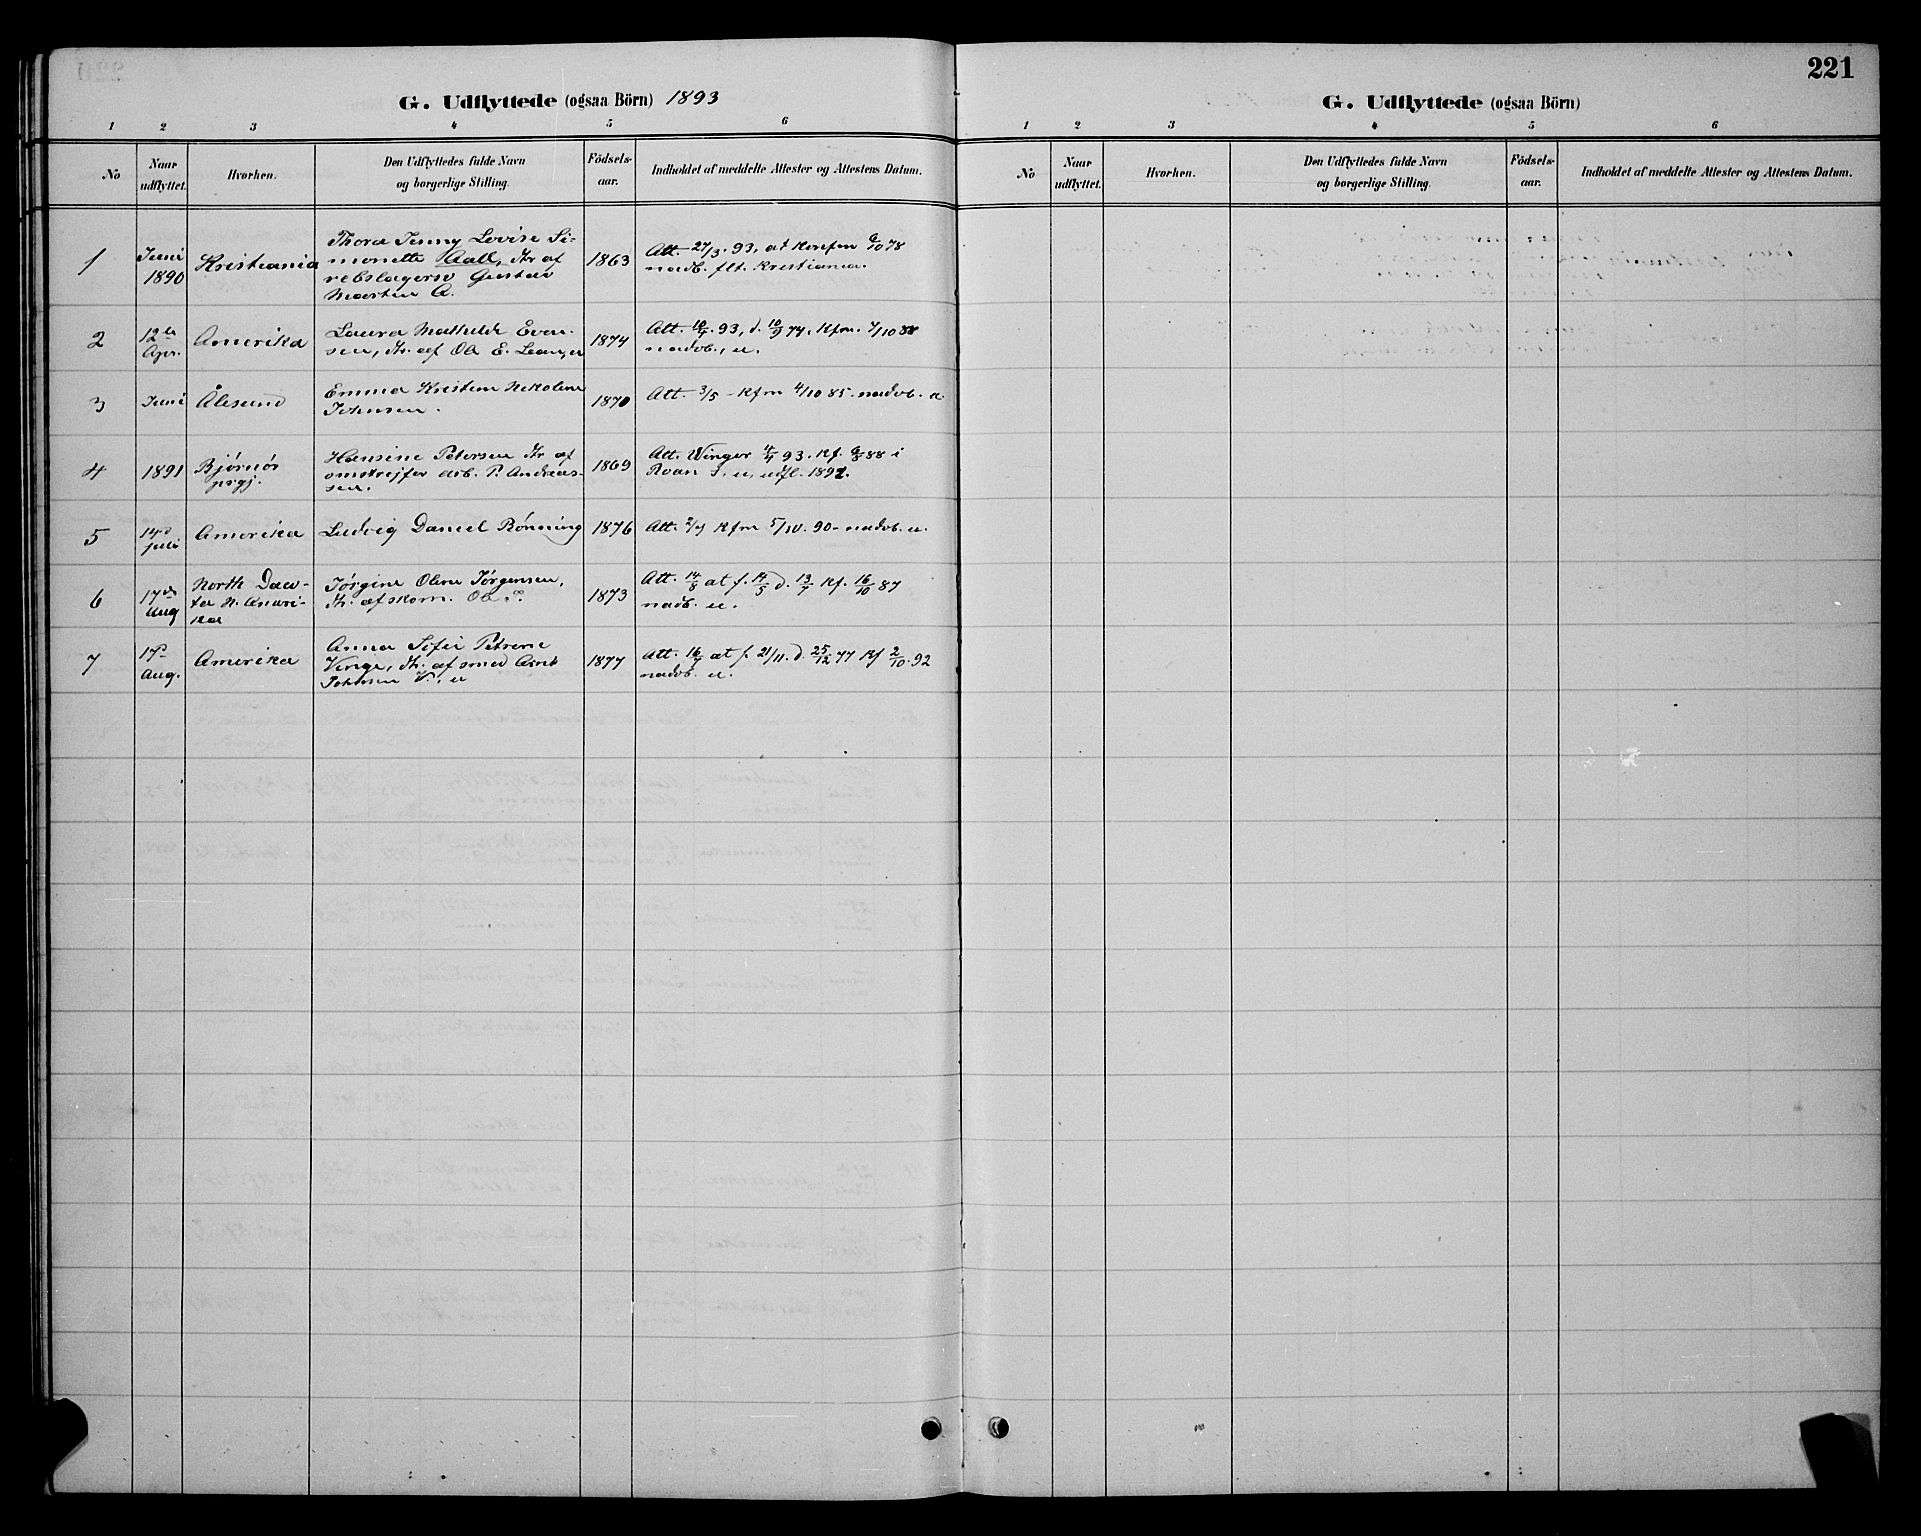 221
G. Udflyttede (ogsaa Börn) 1893
1 2 3 4 5 6
No
Naar udflyttet.
Hvorhen.
Den Udflyttedes fulde Navn
og borgerlige Stilling.
Födsels-
aar.
Indholdet af meddelte Attester og Attestens Datum.
1
Juni
1890
Kristiania
Thora Jenny Lovise Si-
monette Aall, dtr af
rebslagersv Gustav
Martin A.
1863
Att. 27/3. 93, at Konfm 78
nadv. flt. Kristiania.
2
12te
Apr.
Amerika
Laura Mathilde Even-
sen, dtr. af Ole E. u
1874
Att. 93, d. 10/9 74. Kfm. 7/10 88
nadv., u.
3
Juni
Ålesund
Emma Kristine Nikoline
Johnsen.
1870
Att. 3/5 - Kfm 4/10 85. nadv. u
4
1891
Bjørnør
prgj.
Hansine Petersen dtr af
omstrejfer arb. P. Andreas-
sen.
1869
Att. Vinger 93. Kf. 88 i
Roan u, udfl. 1891.
5
14d
juli
Amerika
Ludvig Daniel Rönning
1876
Att. Kfm 5/10. 90 - nadv. u.
6
17de
Aug
North Daco-
ta N. Ameri-
ka
Jørgine Oline Jørgensen,
dtr. af skom. Ole J.
1873
Att. 14/8 at f. 14/5 d. 13/7 Kf. 16/10 87
nadv. u.
7
17d
Aug.
Amerika
Anna Sofie Petrine
Vinge, dtr. af smed Arnt
Johnsen V., u
1877
Att. 16/7 at f. 21/11. d. 25/12 77 Kf 2/10. 92
nadv. u.
G. Udflyttede (ogsaa Börn)
1 2 3 4 5 6
No
Naar
udflyttet.
Hvorhen.
Den Udflyttedes fulde Navn
og borgerlige Stilling.
Födsels-
aar.
Indholdet af meddelte Attester og Attestens Datum.